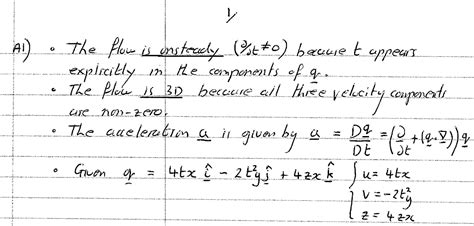 1/
A1) • The flow is unsteady (∂/∂t ≠ 0) because t appears
explicitly in the components of q.
• The flow is 3D because all three velocity components
are non-zero.
• The acceleration a is given by a = Dq/Dt = (∂/∂t + (q·∇))q
• Given q = 4tx î - 2t²y ĵ + 4zx k̂ { u = 4tx
v = -2t²y
z = 4zx